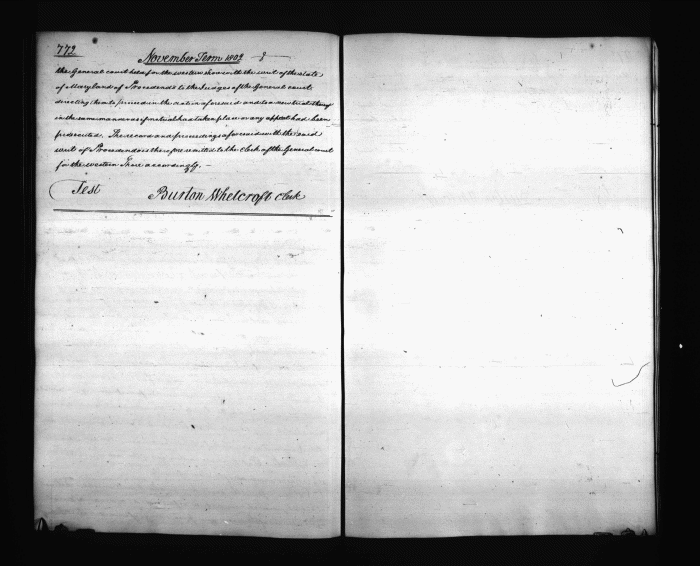 772
November Term 1802
the General court held for the western shore with the writ of the state
of Maryland of Procedendo to the Judges of the General court
directing them to proceed in the action aforesaid and to a new trial thereof
in the same manner as if no trial had taken place or any appeal had been
prosecuted. The record and proceedings aforesaid with the said
writ of Procedendo is therefore remitted to the Clerk of the General court
for the western Shore accordingly. —
Test Burton Whetcroft Clerk